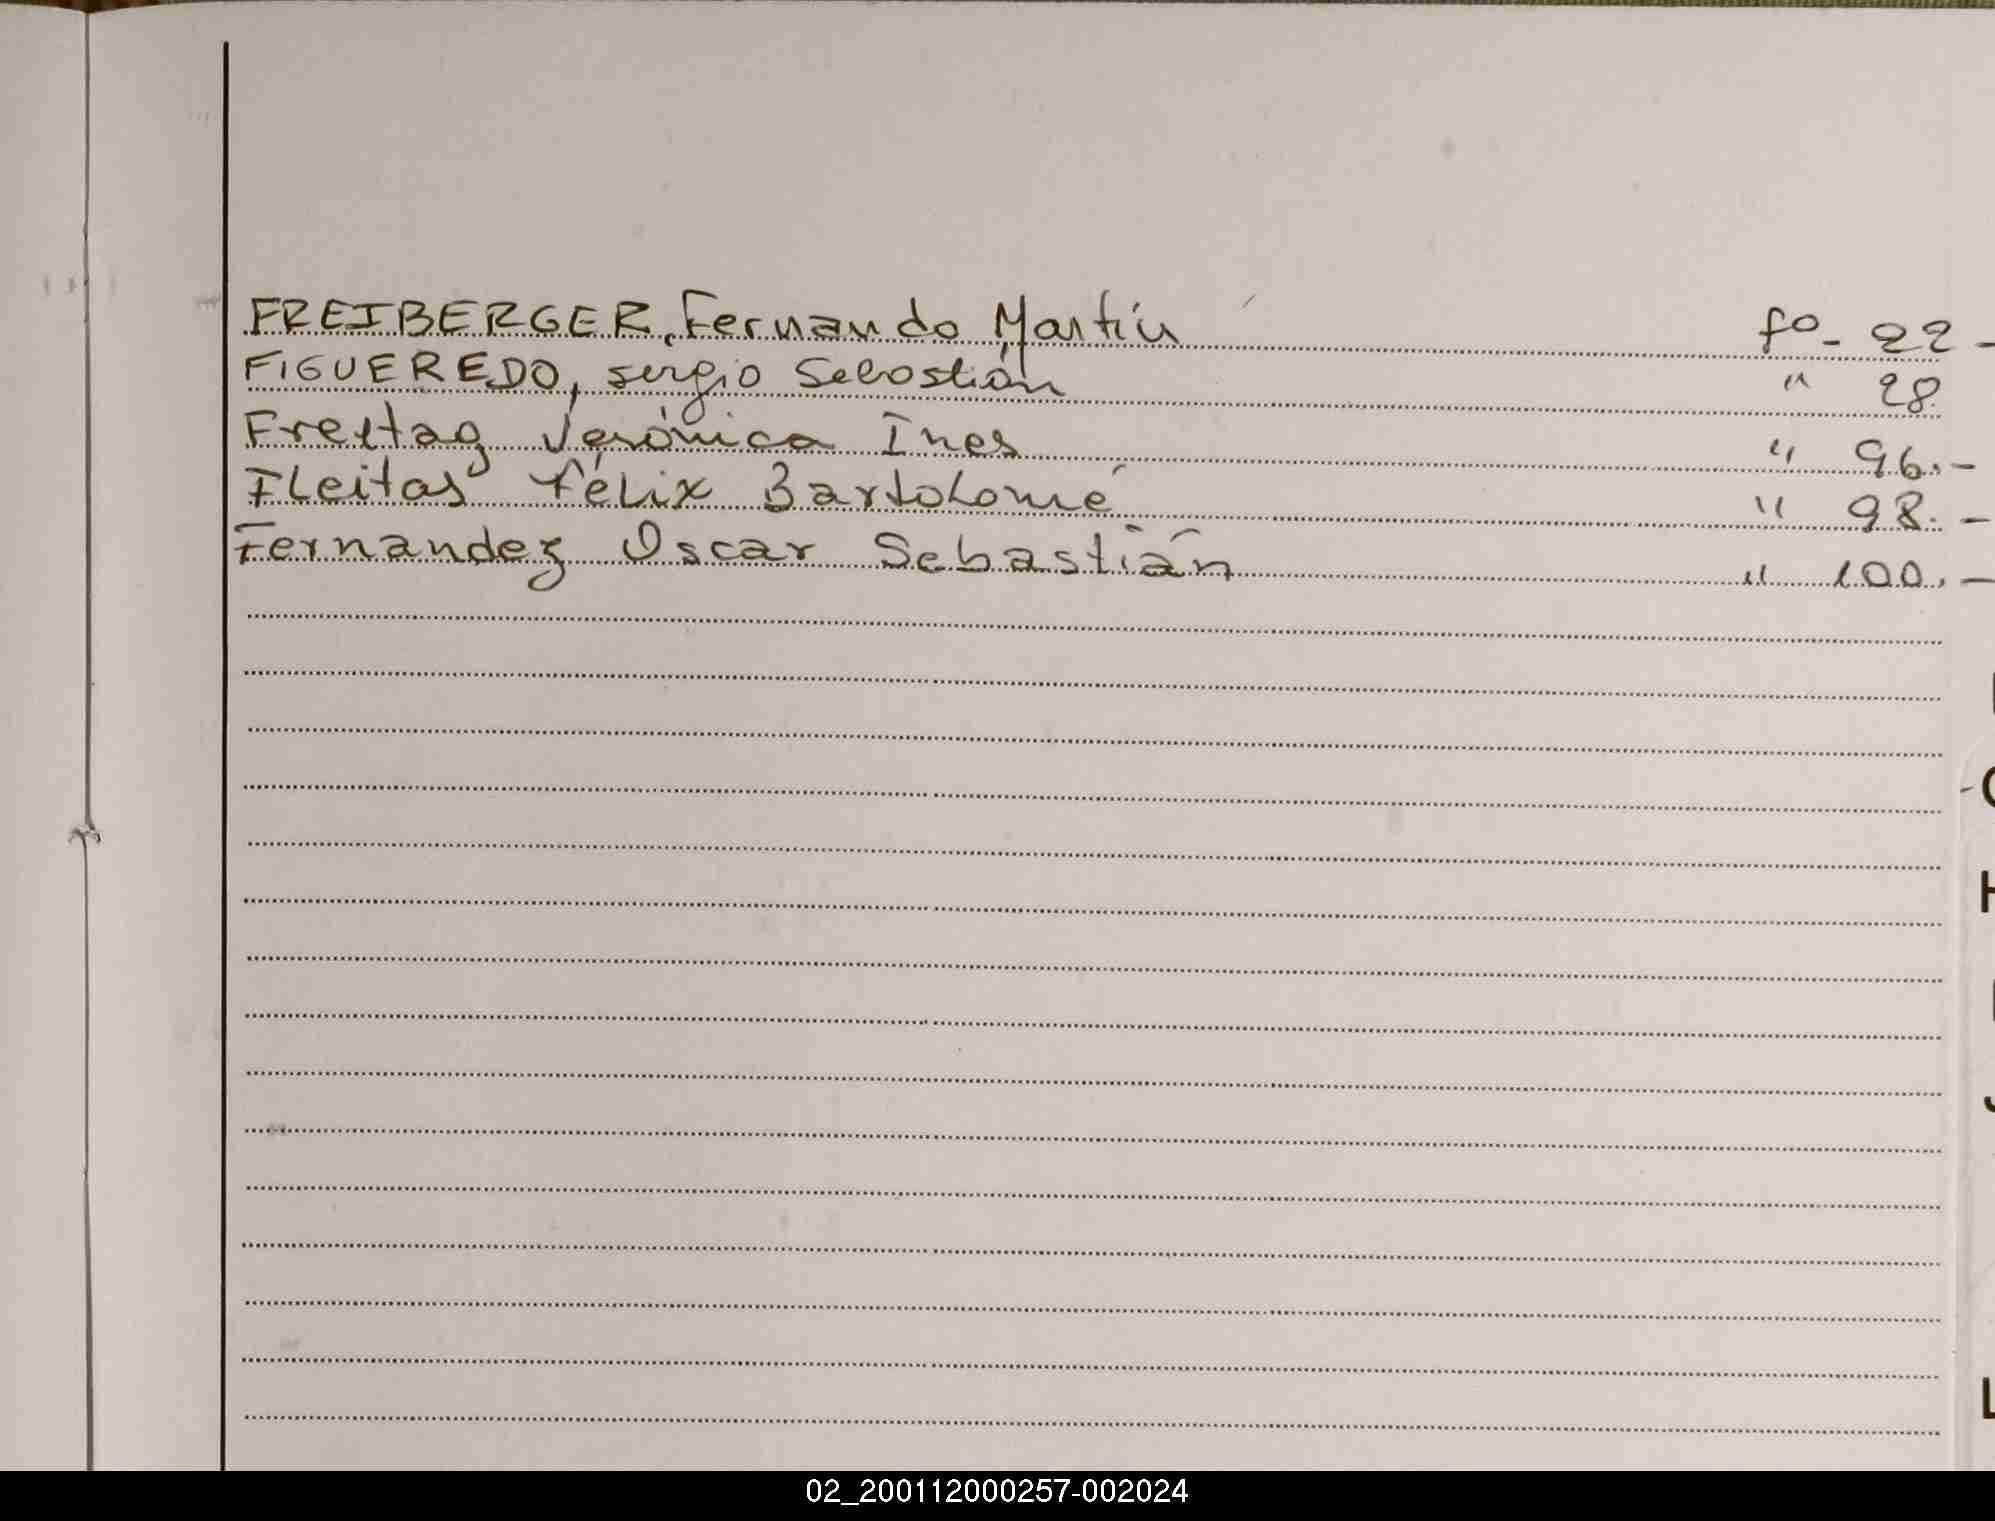 FREIBERGER, Fernando Martín fo - 22 -
FIGUEREDO, sergio Sebastián " 28.
Freitag Verónica Ines " 96.-
Fleitas Félix Bartolomé " 98.-
Fernandez Oscar Sebastián " 100.-
H
J
L
02_200112000257-002024